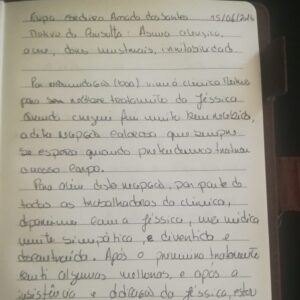 Medeiros Amado dos Santos 15/06/2016
Motivo da Consulta: Asma alérgica,
acne, dores menstruais, irritabilidade.
Por recomendação vim à clínica
para com tratamento da Jéssica.
Quando cheguei fui muito bem recebida,
aquela recepção calorosa que sempre
se espera quando pretendemos tratar
o nosso corpo.
Para além desta recepção, por parte de
todos os trabalhadores da clínica,
deparei-me com a Jéssica, uma médica
muito simpática, e divertida e
descontraída. Após o primeiro tratamento
senti algumas melhoras, e após a
insistência e dedicação da Jéssica, estou